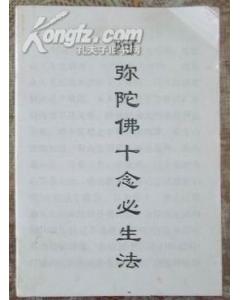 阿弥陀佛十念必生法
kongfz.com
孔夫子旧书网